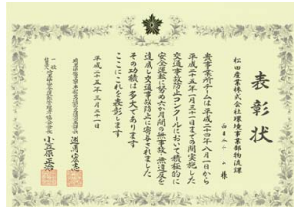 表彰状
松田産業株式会社環境事業部物流課
様
貴事業所チームは平成二十四年八月一日から
平成二十五年一月三十一日まで間実施した
交通事故防止コンクールにおいて積極的に
安全運転に努め六か月間の無事故・無違反を
達成し交通事故防止に寄与されました
その功績は多大であります
ここにこれを表彰します
平成二十五年三月二十一日